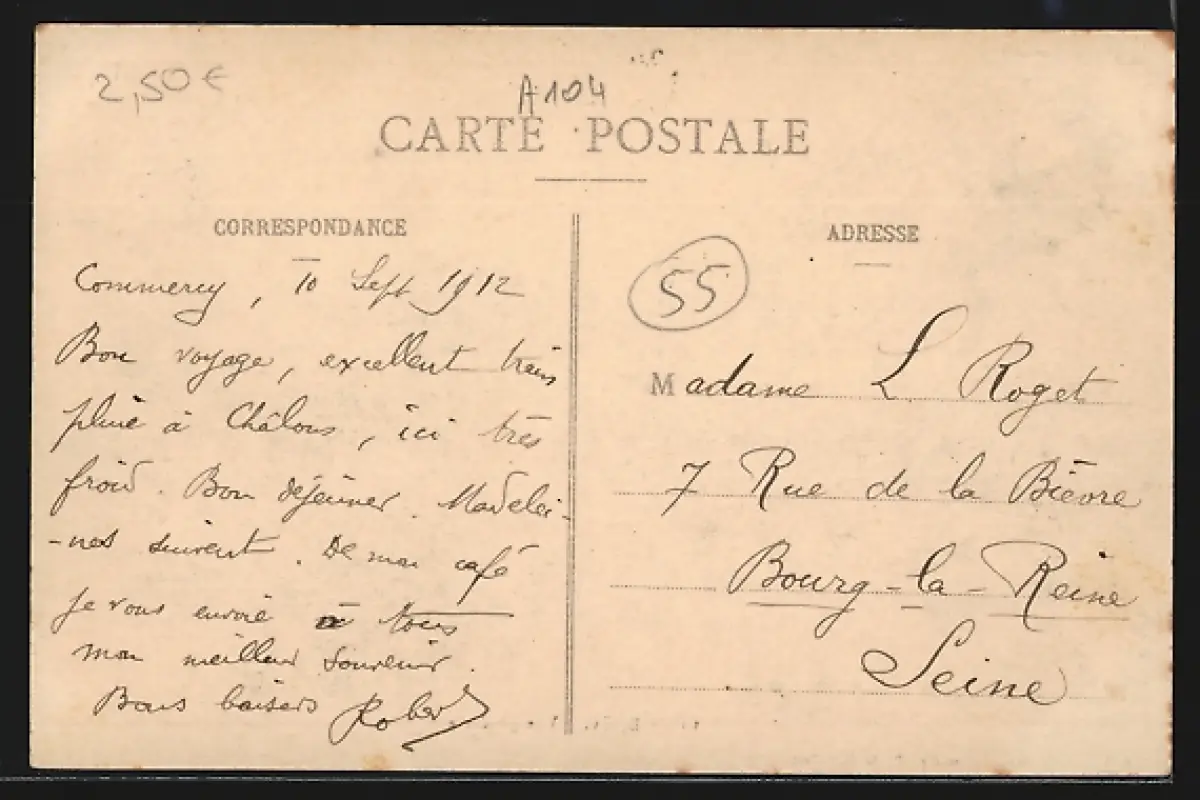 2,50 €
A104
CARTE POSTALE
CORRESPONDANCE
Commercy, 10 Sept 1912
Bon voyage, excellent train
pluie à Châlons, ici très
froid. Bon déjeuner. Madelei-
-nes suivent. De mon café
je vous envoie à tous
mon meilleur souvenir.
Bons baisers Robert
ADRESSE
55
Madame L Roget
7 Rue de la Bièvre
Bourg-la-Reine
Seine